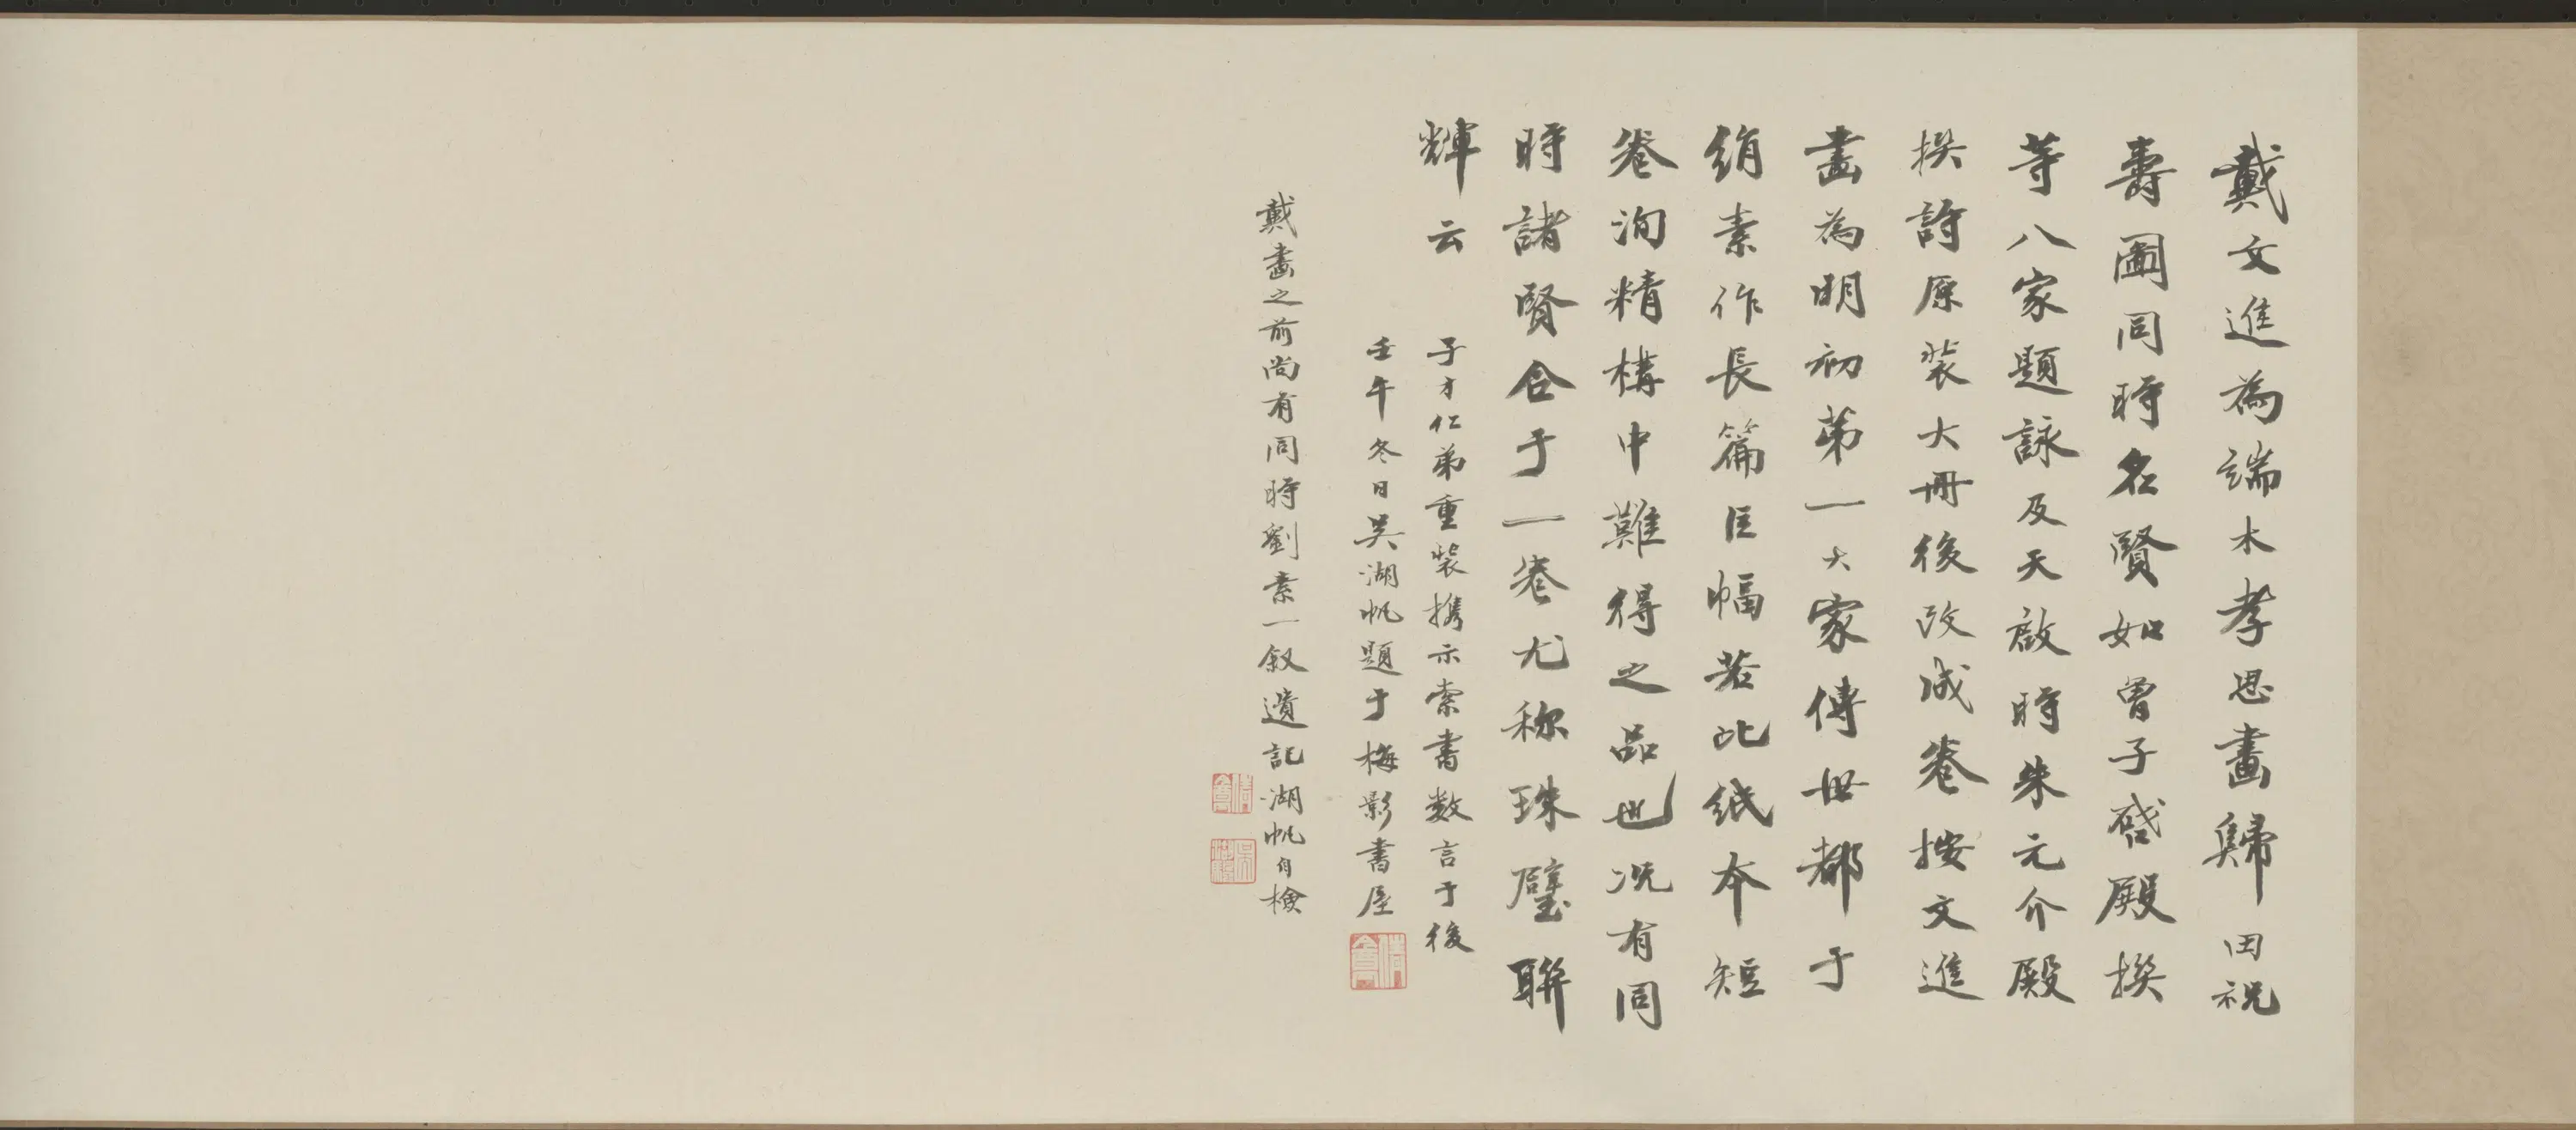 戴文進為端木孝思畫歸田祝
壽圖同時名賢如曾子棨殿撰
等八家題詠及天啟時朱元介殿
撰詩原裝大冊後改成卷按文進
畫為明初第一大家傳世都于
絹素作長篇巨幅若此紙本短
卷洵精構中難得之品也况有同
時諸賢合于一卷尤称珠璧聯
輝云 子才仁弟重裝攜示索書数言于後
壬午冬日吳湖帆題于梅影書屋
戴畫之前尚有同時劉素一叙遺記湖帆自檢